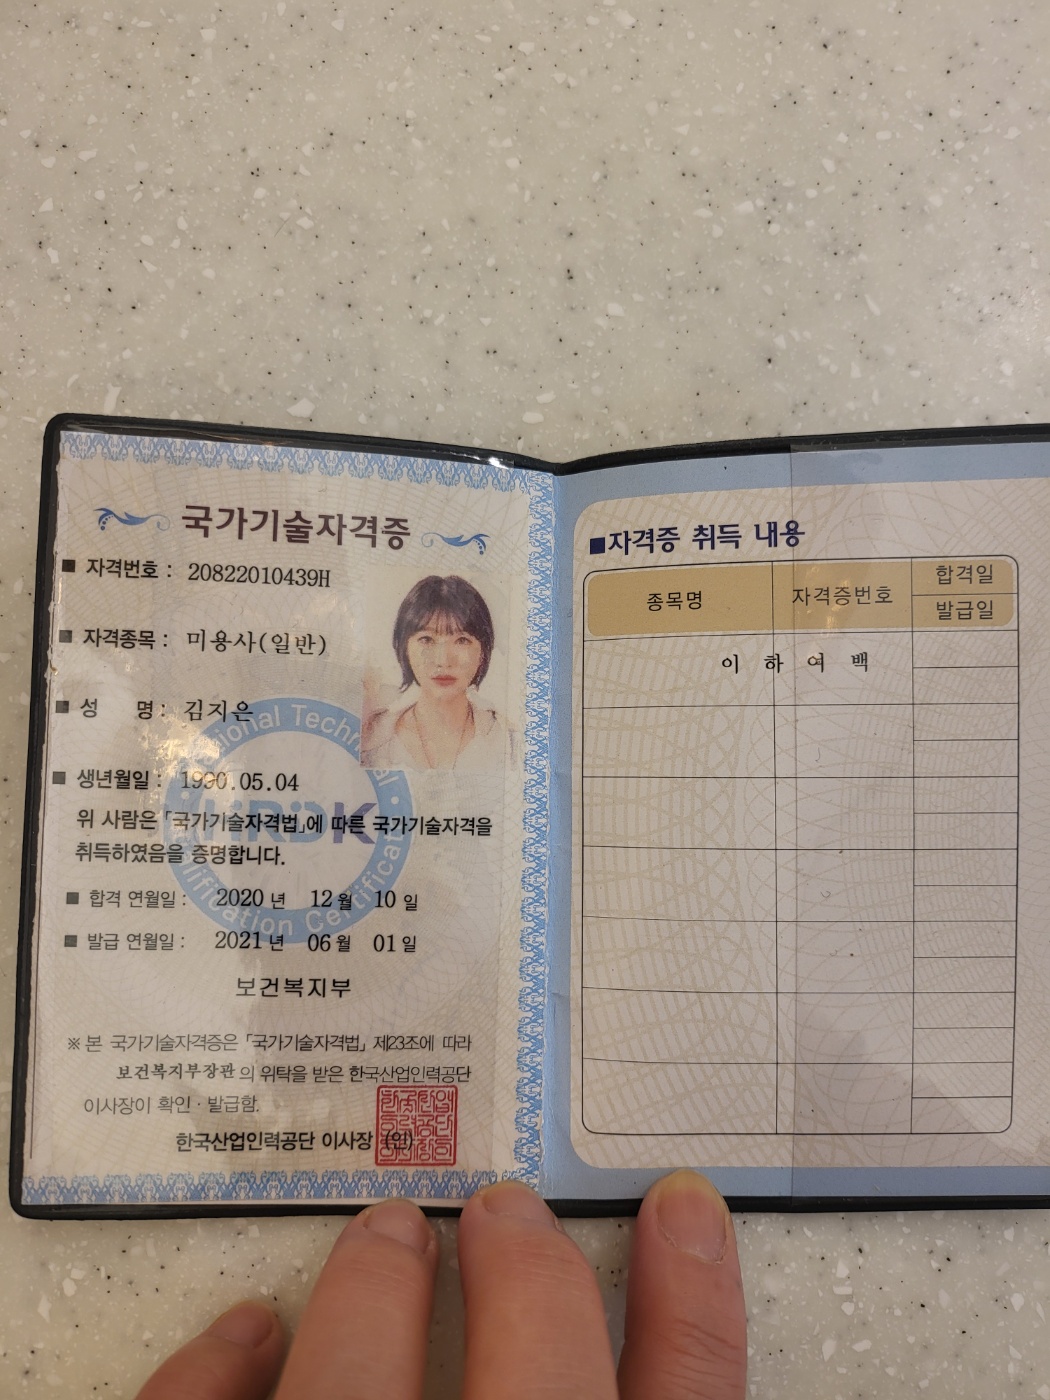 국가기술자격증
■ 자격번호 : 20822010439H
■ 자격종목 : 미용사(일반)
■ 성 명 : 김지은
■ 생년월일 : 1990.05.04
위 사람은 「국가기술자격법」에 따른 국가기술자격을
취득하였음을 증명합니다.
■ 합격 연월일 : 2020 년 12 월 10 일
■ 발급 연월일 : 2021 년 06 월 01 일
보건복지부
※ 본 국가기술자격증은 「국가기술자격법」 제23조에 따라
보건복지부장관 의 위탁을 받은 한국산업인력공단
이사장이 확인 · 발급함.
한국산업인력공단 이사장 (인)
HRDK
Qualification Certificate
■자격증 취득 내용
종목명 자격증번호 합격일
발급일
이 하 여 백